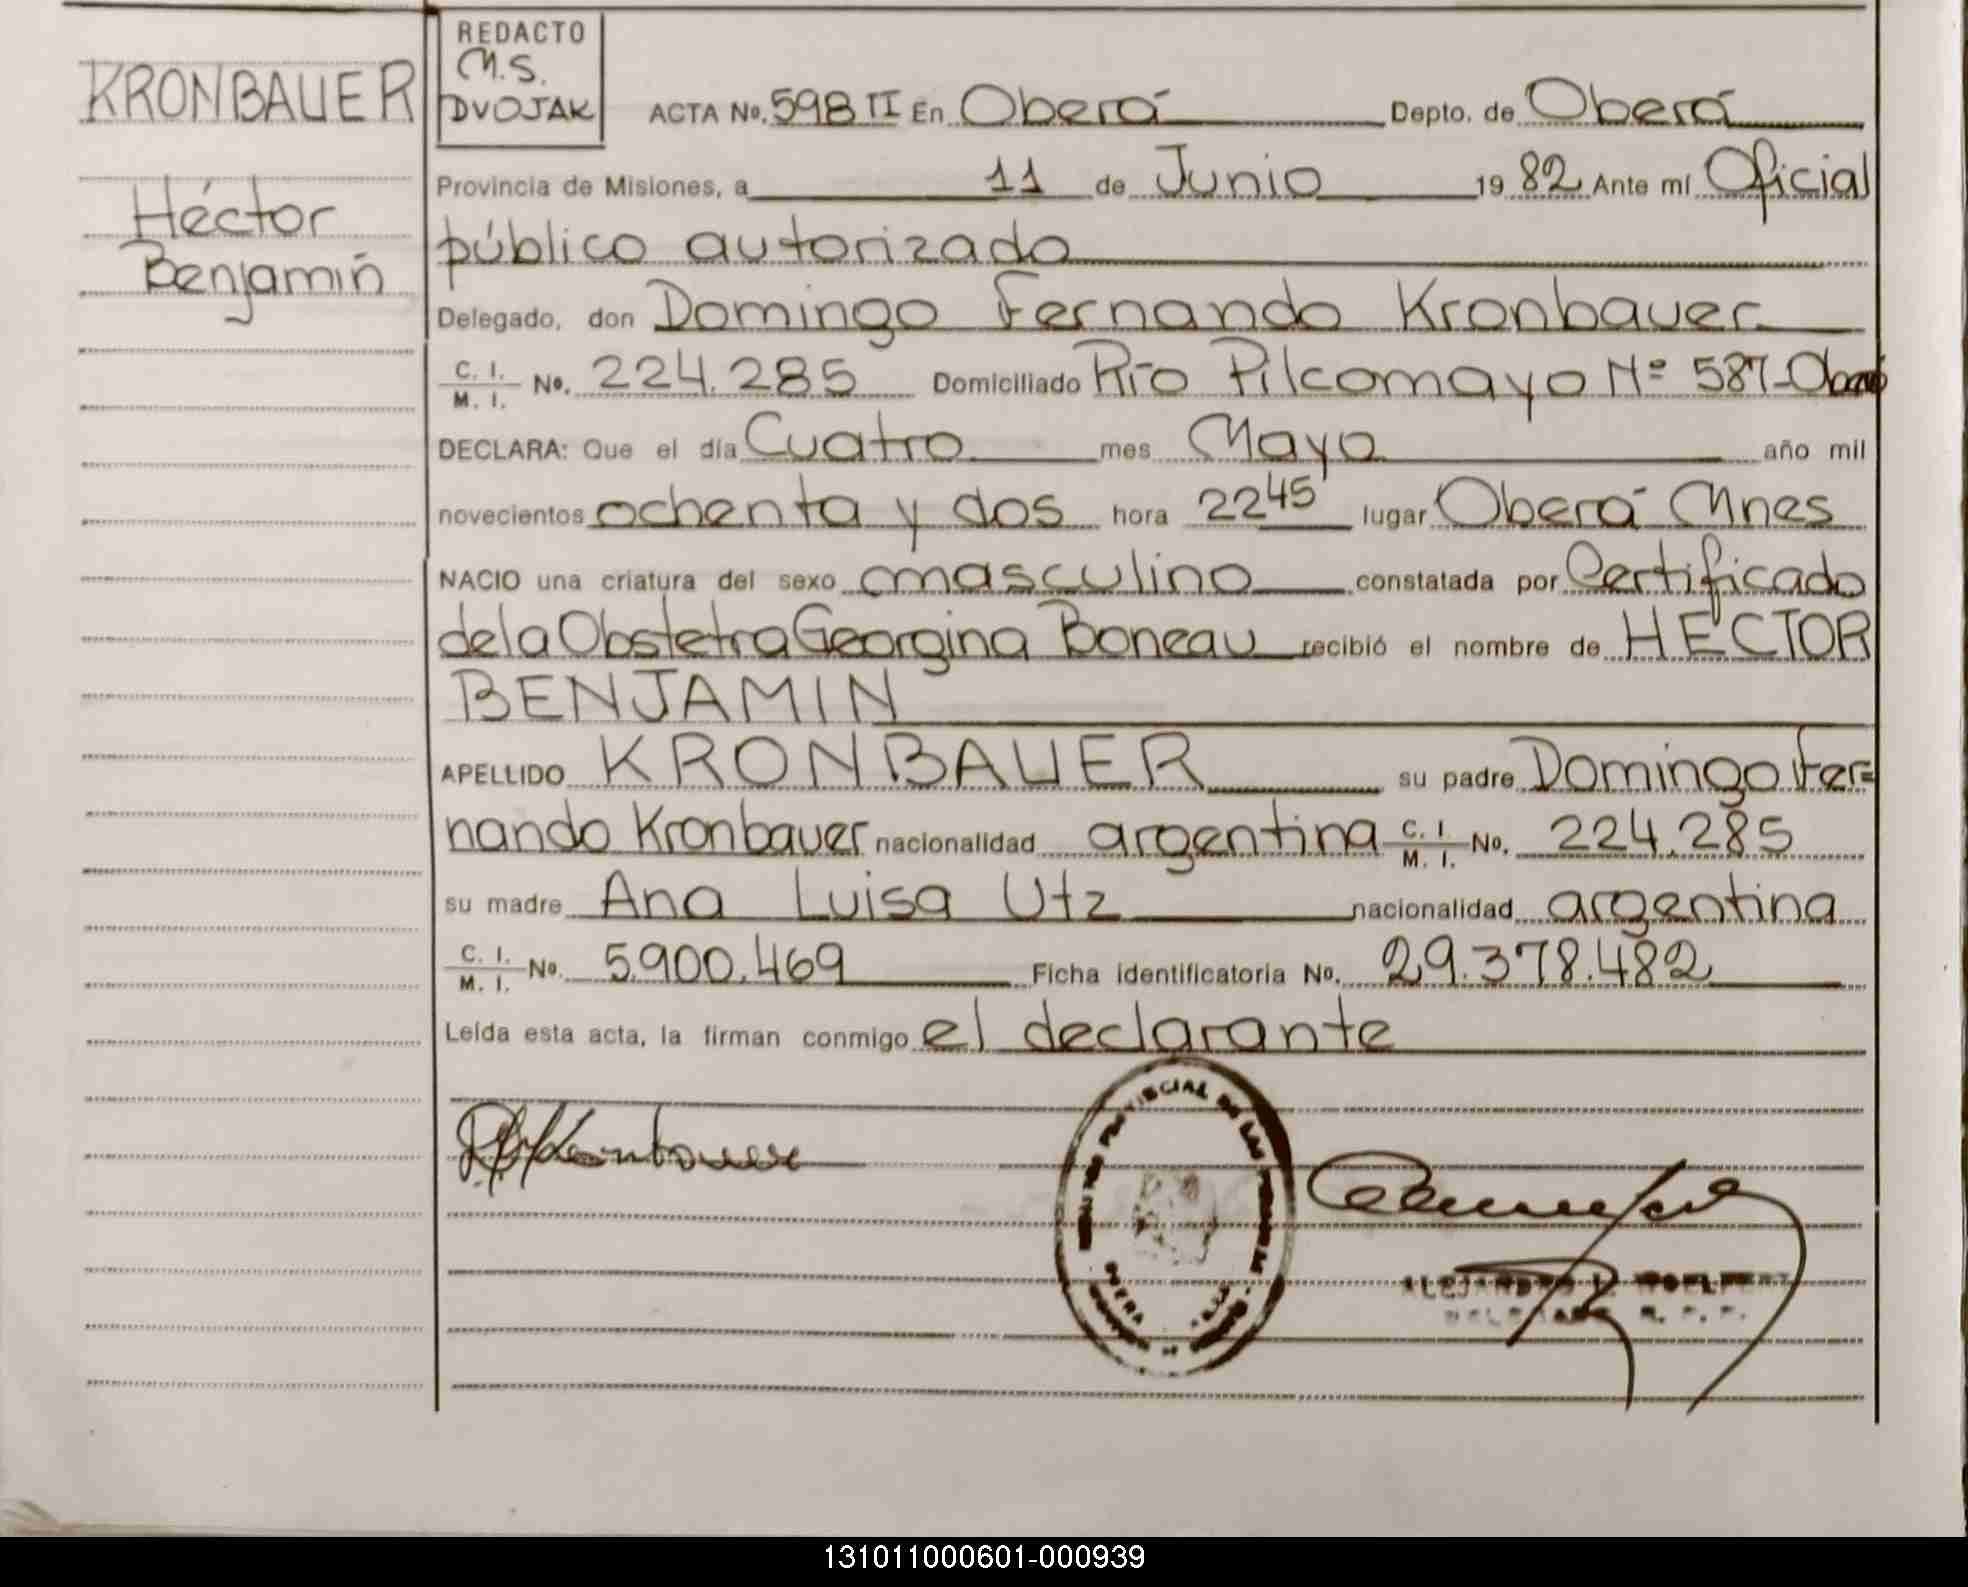 KRONBAUER
Héctor
Benjamín
REDACTO
M.S.
DVOJAK
ACTA No. 598 II En Oberá Depto. de Oberá
Provincia de Misiones, a 11 de Junio 1982 Ante mí Oficial
público autorizado
Delegado, don Domingo Fernando Kronbauer
C. I. / M. I. No. 224.285 Domiciliado Río Pilcomayo Nº 587-Oberá
DECLARA: Que el día Cuatro mes Mayo año mil
novecientos ochenta y dos hora 22 45' lugar Oberá Mnes
NACIO una criatura del sexo masculino constatada por Certificado
de la Obstetra Georgina Boneau recibió el nombre de HÉCTOR
BENJAMIN
APELLIDO KRONBAUER su padre Domingo Fer=
nando Kronbauer nacionalidad argentina C. I. / M. I. No. 224.285
su madre Ana Luisa Utz nacionalidad argentina
C. I. / M. I. No. 5.900.469 Ficha identificatoria No. 29.378.482
Leída esta acta, la firman conmigo el declarante
Kronbauer
PROVINCIAL DE LAS PERSONAS
OBERA
ALEJANDRO
DELEGADO R. P. P.
131011000601-000939